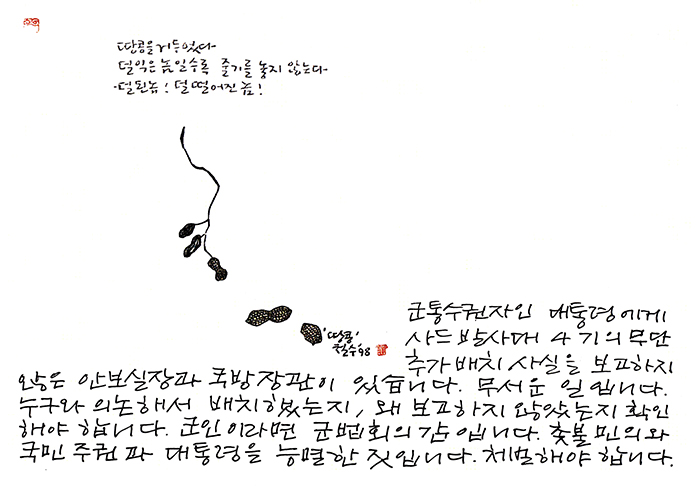 땅콩을 거두었다
덜 익은 놈일수록 줄기를 놓지 않는다
덜 된 놈! 덜 떨어진 놈!
'땅콩'
철수'98
군통수권자인 대통령에게
사드 발사대 4기의 무단
추가 배치 사실을 보고하지
않은 안보실장과 국방장관이 있습니다. 무서운 일입니다.
누구와 의논해서 배치했는지, 왜 보고하지 않았는지 확인
해야 합니다. 군인이라면 군법회의감입니다. 촛불 민의와
국민주권과 대통령을 능멸한 짓입니다. 처벌해야 합니다.